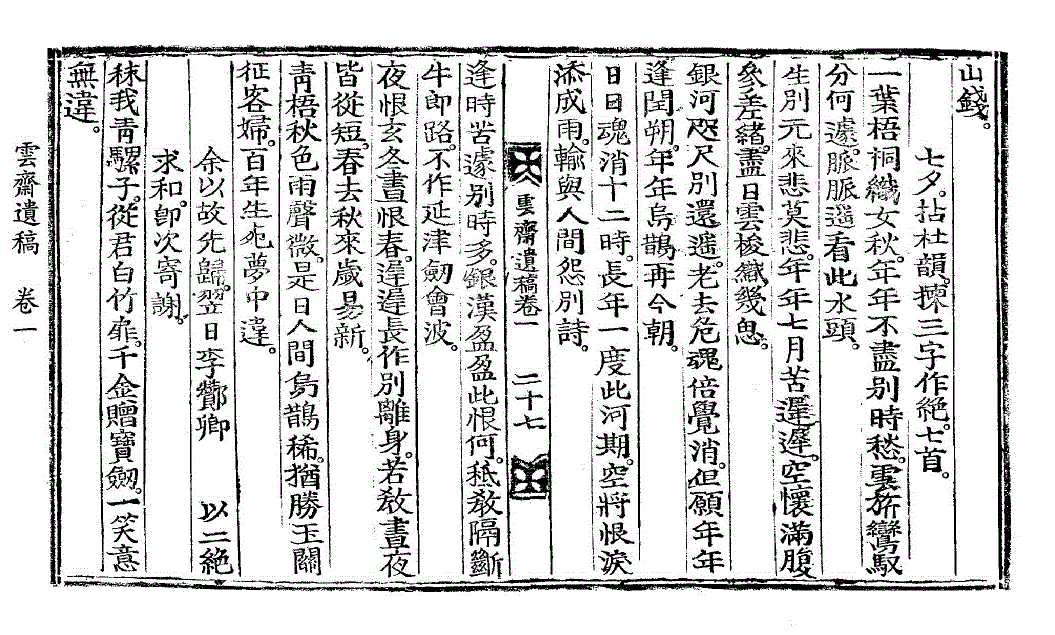 山錢。
七夕。拈杜韻。揀三字作絶。七首。
一葉梧桐織女秋。年年不盡別時愁。雲旂鸞馭
分何遽。脈脈遙看此水頭。
生別元來悲莫悲。年年七月苦遲遲。空懷滿腹
參差緖。盡日雲梭織幾思。
銀河咫尺別還遙。老去危魂倍覺消。但願年年
逢閏朔。年年烏鵲再今朝。
日日魂消十二時。長年一度此河期。空將恨淚
添成雨。輸與人間怨別詩。
雲齋遺稿卷一 二十七
逢時苦遽別時多。銀漢盈盈此恨何。秪敎隔斷
牛郞路。不作延津劒會波。
夜恨玄冬晝恨春。遑遑長作別離身。若敎晝夜
皆從短。春去秋來歲易新。
靑梧秋色雨聲微。是日人間烏鵲稀。猶勝玉關
征客婦。百年生死夢中違。
余以故先歸。翌日李鄼卿 以二絶
求和。卽次寄謝。
秣我靑騾子。從君白竹扉。千金贈寶劒。一笑意
無違。
雲齋遺稿 卷一